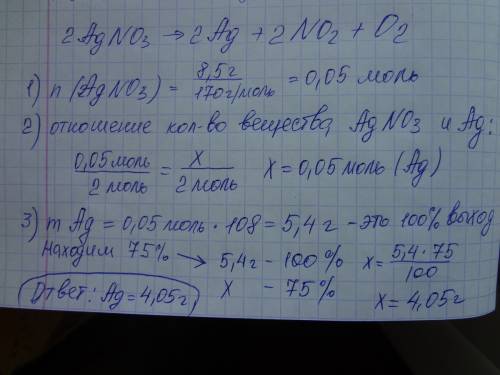 2AgNO₃ → 2Ag + 2NO₂ + O₂
1) n(AgNO₃) = 8,5г / 170г/моль = 0,05 моль
2) отношение кол-во вещества AgNO₃ и Ag:
0,05 моль / 2 моль = x / 2 моль x = 0,05 моль (Ag)
3) m Ag = 0,05 моль · 108 = 5,4 г - это 100% выход
Находим 75% → 5,4г - 100% x = 5,4 · 75 / 100
Ответ: Ag = 4,05г x - 75% x = 4,05г